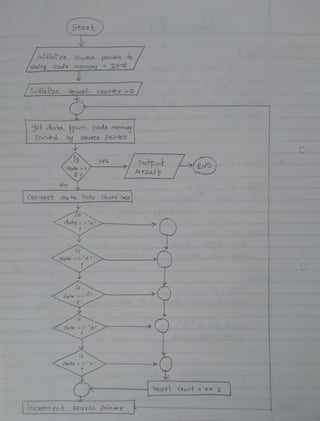 Start
initialize source pointer to
string code memory = DPTR
initialize vowel counter = 0
get data from code memory
pointed by source pointer
Is
data ==
yes
output
result
END
No
Convert data into lower case
Is
data == 'a'
?
Is
data ==
?
is
data ==
?
is
data ==
?
is
data ==
?
vowel count = ++ 1
increment source pointer